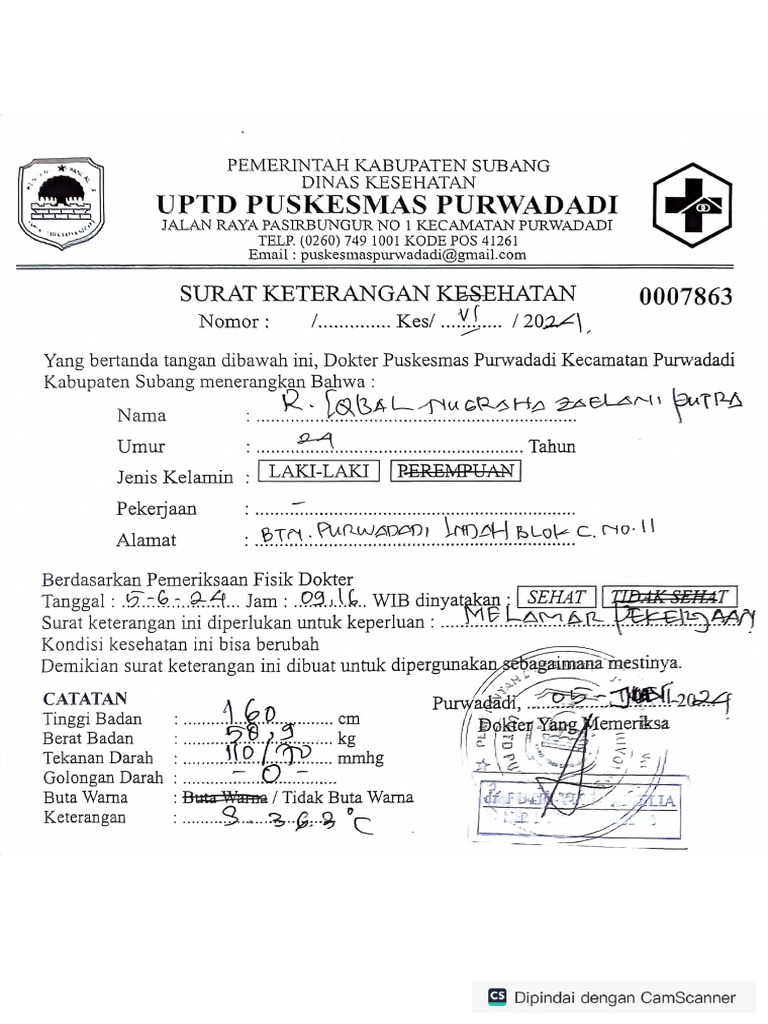 PEMERINTAH KABUPATEN SUBANG
DINAS KESEHATAN
UPTD PUSKESMAS PURWADADI
JALAN RAYA PASIRBUNGUR NO 1 KECAMATAN PURWADADI
TELP. (0260) 749 1001 KODE POS 41261
Email : puskesmaspurwadadi@gmail.com
SURAT KETERANGAN KESEHATAN 0007863
Nomor : /............. Kes/ ....VI..... / 2024
Yang bertanda tangan dibawah ini, Dokter Puskesmas Purwadadi Kecamatan Purwadadi
Kabupaten Subang menerangkan Bahwa :
Nama : R. IQBAL NUGRAHA ZAELANI PUTRA
Umur : 24 Tahun
Jenis Kelamin : LAKI-LAKI PEREMPUAN
Pekerjaan : -
Alamat : BTN. PURWADADI INDAH BLOK C. NO. 11
Berdasarkan Pemeriksaan Fisik Dokter
Tanggal : 5-6-24 Jam : 09.16 WIB dinyatakan : SEHAT TIDAK SEHAT
Surat keterangan ini diperlukan untuk keperluan : MELAMAR PEKERJAAN
Kondisi kesehatan ini bisa berubah
Demikian surat keterangan ini dibuat untuk dipergunakan sebagaimana mestinya.
CATATAN
Purwadadi, 05-JUNI 2024
Dokter Yang Memeriksa
Tinggi Badan : 160 cm
Berat Badan : 58,9 kg
Tekanan Darah : 110/70 mmhg
Golongan Darah : - O -
Buta Warna : Buta Warna / Tidak Buta Warna
Keterangan : S. 36.3°C
CS Dipindai dengan CamScanner